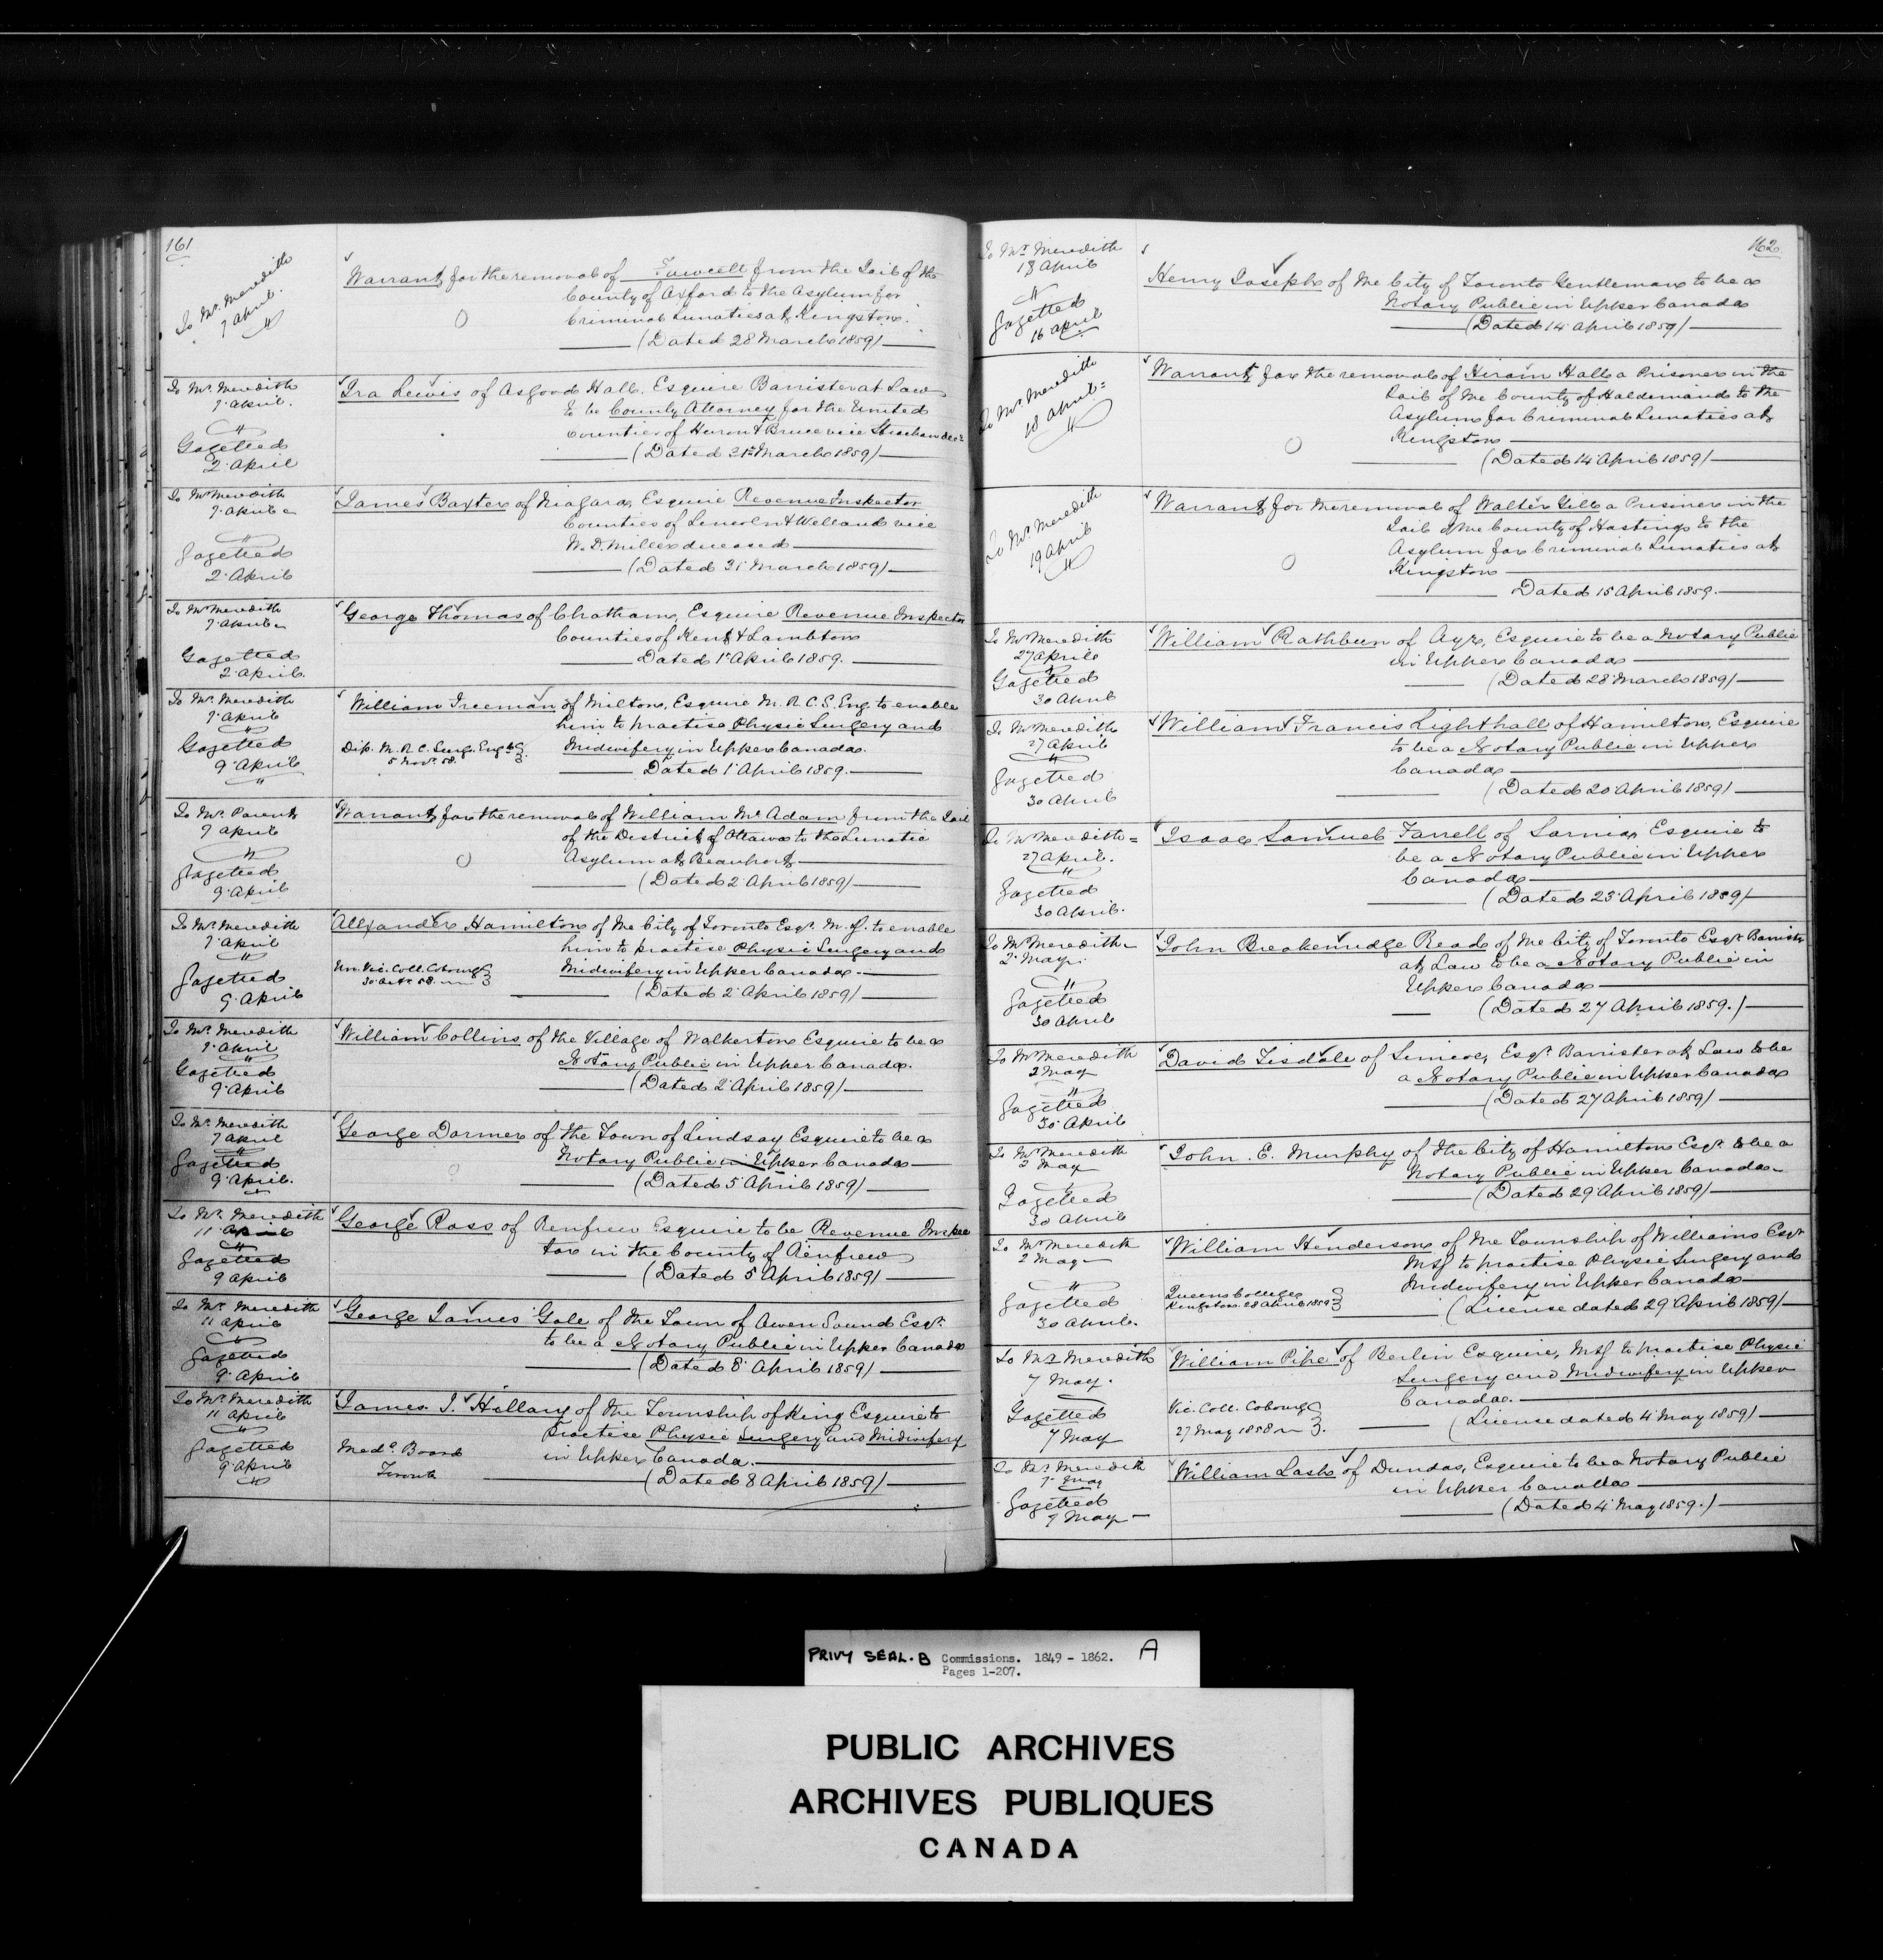 161
To Mr. Meredith
7 April.
Warrant for the removal of Fawcett from the Gail of the
County of Oxford to the Asylum for
Criminal Lunatics at Kingston.
(Dated 28 March 1859)
To Mr. Meredith
7 April.
Gazetted
2 April
Ira Lewis of Osgood Hall. Esquire Barrister at Law
to be County Attorney for the United
Counties of Huron & Bruce vice Strachan
(Dated 31st March 1859)
To Mr Meredith
7 April
Gazetted
2 April
James Baxter of Niagara, Esquire Revenue Inspector
Counties of Lincoln & Welland vice
W. D. Miller deceased
(Dated 31 March 1859)
To Mr Meredith
7 April
Gazetted
2 April.
George Thomas of Chatham, Esquire Revenue Inspector
Counties of Kent & Lambton
Dated 1 April 1859.
To Mr. Meredith
7 April
Gazetted
9 April
William Freeman of Milton, Esquire M. R. C. S. Eng. to enable
him to practise Physic Surgery and
Dip. M. R. C. Surg. Engld
5 Nov. 58.
Midwifery in Upper Canada.
Dated 1 April 1859.
To Mr. Parent
7 April
Gazetted
9 April
Warrant for the removal of William McAdam from the Gail
of the District of Ottawa to the Lunatic
Asylum at Beauport
(Dated 2 April 1859)
To Mr. Meredith
7 April
Gazetted
9 April
Allxander Hamilton of the City of Toronto Esqr. M. D. to enable
him to practise Physic Surgery and
Un. Vic. Coll. Cobourg
Midwifery in Upper Canada.
(Dated 2 April 1859)
To Mr. Meredith
7 April
Gazetted
9 April
William Collins of the Village of Walkerton Esquire to be a
Notary Public in Upper Canada.
(Dated 2 April 1859)
To Mr. Meredith
7 April
Gazetted
9 April.
George Dormer of the Town of Lindsay Esquire to be a
Notary Public in Upper Canada
(Dated 5 April 1859)
To Mr. Meredith
11 April
Gazetted
9 April
George Ross of Renfrew Esquire to be Revenue Inspec
tor in the County of Renfrew
(Dated 5 April 1859)
To Mr. Meredith
11 April
Gazetted
9 April
George James Gale of the Town of Owen Sound Esqr.
to be a Notary Public in Upper Canada
(Dated 8 April 1859)
To Mr. Meredith
11 April
Gazetted
9 April
James J. Hillary of the Township of King Esquire to
Practise Physic Surgery and Midwifery
Medl. Board
Toronto
in Upper Canada.
(Dated 8 April 1859)
162
To Mr. Meredith
18 April
Gazetted
16 April
Henry Joseph of the City of Toronto Gentleman to be a
Notary Public in Upper Canada
(Dated 14 April 1859)
To Mr. Meredith
18 April
Warrant for the removal of Hiram Hall a Prisoner in the
Gail of the County of Haldimand to the
Asylum for Criminal Lunatics at
Kingston
(Dated 14 April 1859)
To Mr. Meredith
19 April
Warrant for the removal of Walter Gill a Prisoner in the
Gail of the County of Hastings to the
Asylum for Criminal Lunatics at
Kingston
Dated 15 April 1859.
To Mr Meredith
27 April
Gazetted
30 April
William Rathbun of Ayr, Esquire to be a Notary Public
in Upper Canada
(Dated 28 March 1859)
To Mr. Meredith
27 April
Gazetted
30 April
William Francis Lighthall of Hamilton, Esquire
to be a Notary Public in Upper
Canada
(Dated 20 April 1859)
To Mr Meredith
27 April.
Gazetted
30 April.
Isaac Samuel Farrell of Sarnia, Esquire to
be a Notary Public in Upper
Canada
(Dated 23 April 1859)
To Mr Meredith
2 May.
Gazetted
30 April
John Breakenridge Read of the City of Toronto Esqr. Barrister
at Law to be a Notary Public in
Upper Canada
(Dated 27 April 1859.)
To Mr Meredith
2 May
Gazetted
30 April
David Tisdale of Simcoe, Esqr. Barrister at Law to be
a Notary Public in Upper Canada
(Dated 27 April 1859)
To Mr Meredith
2 May
Gazetted
30 April
John. E. Murphy of the City of Hamilton Esqr. to be a
Notary Public in Upper Canada
(Dated 29 April 1859)
To Mr Meredith
2 May
Gazetted
30 April.
William Henderson of the Township of Williams Esqr
M.D. to practise Physic Surgery and
Midwifery in Upper Canada
Queens College
Kingston 28 April 1859
(License dated 29 April 1859)
To Mr Meredith
7 May.
Gazetted
7 May
William Pipe of Berlin Esquire, M.D. to practise Physic
Surgery and Midwifery in Upper
Canada.
Vic. Coll. Cobourg
27 May 1858
(License dated 4 May 1859)
To Mr. Meredith
7 May
Gazetted
7 May
William Lash of Dundas, Esquire to be a Notary Public
in Upper Canada
(Dated 4 May 1859.)
PRIVY SEAL. B Commissions. 1849 - 1862. A
Pages 1-207.
PUBLIC ARCHIVES
ARCHIVES PUBLIQUES
CANADA